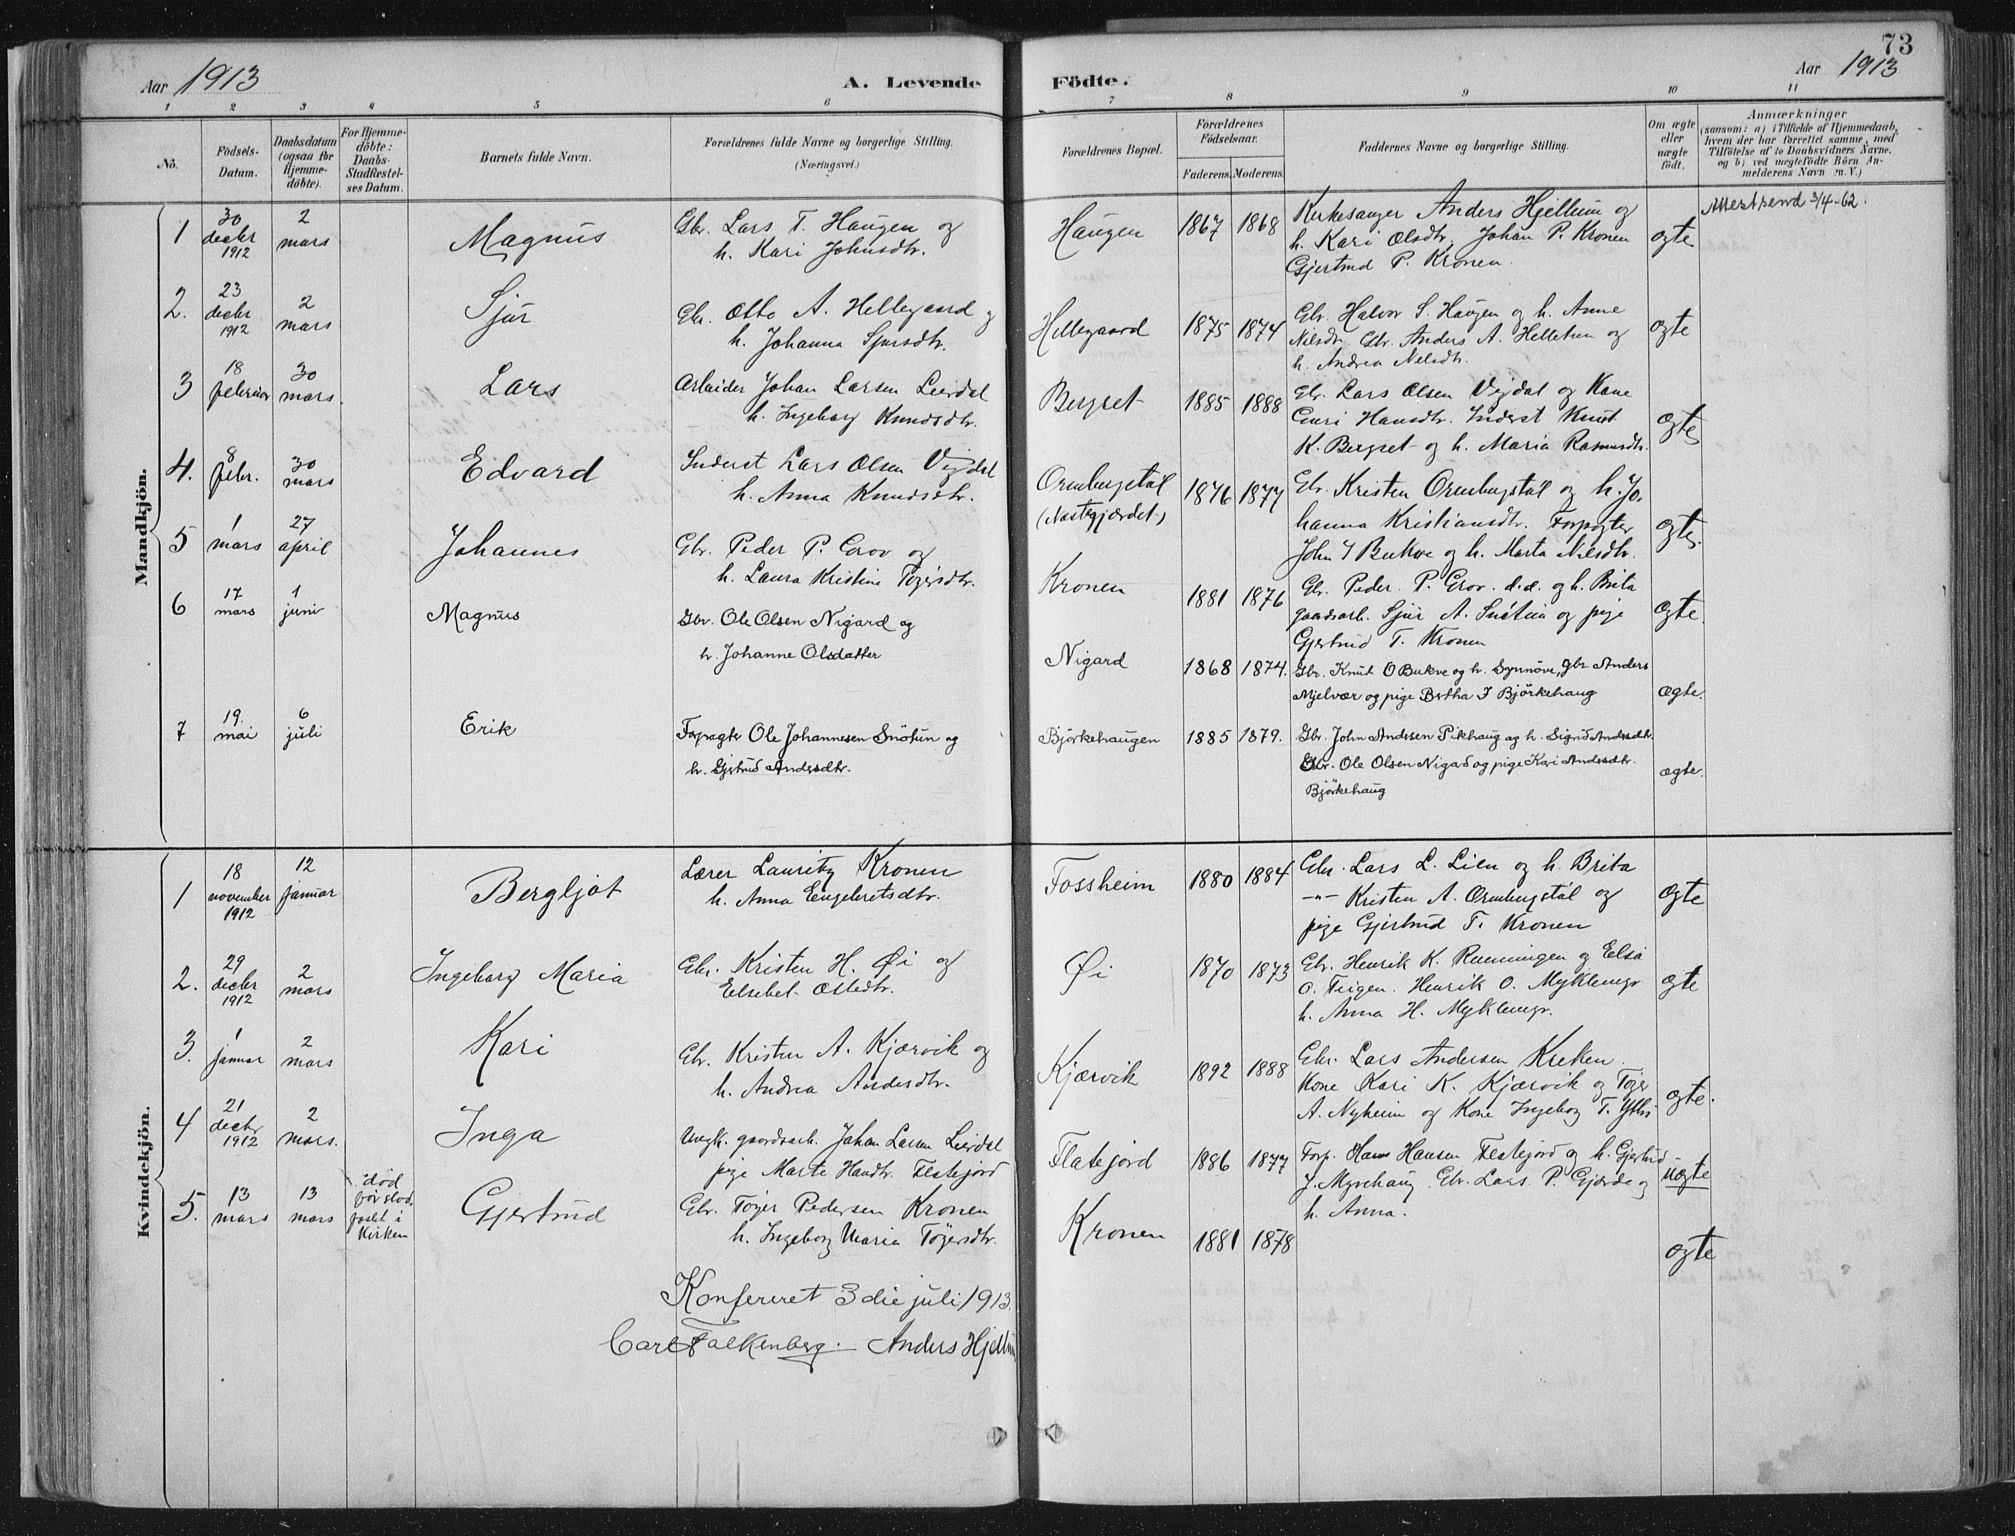 73
Aar 1913
A. Levende
Födte.
Aar 1913
1 2 3 4 5 6 7 8 9 10 11
No.
Födsels-Datum.
Daabsdatum (ogsaa for Hjemme-döbte).
For Hjemme-döbte: Daabs-Stadfæstel-ses Datum.
Barnets fulde Navn.
Forældrenes fulde Navne og borgerlige Stilling. (Næringsvei.)
Forældrenes Bopæl.
Forældrenes Födselsaar.
Faderens. Moderens.
Faddernes Navne og borgerlige Stilling.
Om ægte eller uægte födt.
Anmærkninger
(saasom: a) i Tilfælde af Hjemmedaab,
hvem der har forrettet samme, med
Tilföielse af to Daabsvidners Navne,
og b) ved uægtefödte Börn An-
melderens Navn m. V.)
Mandkjön.
1 30 decbr 1912 2 mars Magnus
Gbr. Lars T. Haugen og
h. Kari Johnsdtr.
Haugen 1867 1868
Kirkesanger Anders Hjellum og
h. Kari Olsdtr, Johan P. Kronen
Gjertrud P. Kronen.
ægte
Attest send 3/4-62.
2. 23 decbr 1912 2 mars Sjur
Gbr. Otto A. Hellegaard og
h. Johanna Sjursdtr.
Hellegaard 1875 1874
Gbr. Halvor S. Haugen og h. Anne
Nilsdtr. Gbr. Anders A. Helletun og
h. Andrea Nelsdtr.
ægte
3 18 februar 30 mars. Lars
Arbeider Johan Larsen Leirdal
h. Ingeborg Knudsdtr.
Bergset 1885 1888
Gbr. Lars Olsen Vejdal og Kone
Guri Hansdtr. Inderst Knut
K. Bergset og h. Maria Rasmusdtr.
ægte
4. 8 febr. 30 mars Edvard
Inderst Lars Olsen Vejdal
h. Anna Knudsdtr.
Ormbergstøl
(Nestegjærdet) 1876 1877
Gbr. Kristen Ormbergstøl og h. Jo-
hanna Kristiansdtr. Forpagter
John I Bukve og h. Marta Nilsdtr.
ægte.
5 1 mars 27 april Johannes
Gbr. Peder P. Grov og
h. Laura Kristine Tøgersdtr.
Kronen 1881 1876
Gbr. Peder P. Grov d.d. og h. Brita
gaardsarb. Sjur A. Snøtun og pige
Gjertrud T. Kronen
ægte.
6 17 mars 1 juni Magnus
Gbr. Ole Olsen Nigard og
h. Johanne Olsdatter
Nigard 1868 1874.
Gbr. Knut O Bukve og h. Synnöve, Gbr. Anders
Mjelvær og pige Bertha I Björkehaug
ægte.
7 19. mai 6 juli Erik
Forpagter Ole Johannesen Snötun og
h. Gjertrud Andersdtr.
Björkehaugen 1885 1879.
Gbr. John Andersen Pikhaug og h. Sigrid Andersdtr.
Gbr. Ole Olsen Nigard og pige Kari Andersdtr.
Björkehaug
ægte.
Kvindekjön.
1 18 november 1912 12 januar Bergljot
Lærer Lauritz Kronen
h. Anna Engebretsdtr.
Fossheim 1880 1884
Gbr. Lars L. Lien og h. Brita
-"- Kristen A. Ormbergstøl og
pige Gjertrud T. Kronen
ægte
2. 29 decbr 1912 2 mars Ingeborg Maria
Gbr. Kristen H. Øi og
Elsebet Olsdtr.
Øi 1870 1873
Gbr. Henrik K. Rumingen og Elsa
O. Teigen. Henrik O. Myklengr
h. Anna H. Myklengr.
ægte
3. 1 januar 2 mars Kari
Gbr. Kristen A. Kjærvik og
h. Andrea Andersdtr.
Kjærvik 1892 1888
Gbr. Lars Andersen Kreken.
Kone Kari K. Kjærvik og Tøger
A. Nyheim og Kone Ingeborg T. Ytri
ægte.
4 21 decbr 1912 2 mars. Inga
Ungk. gaardsarb. Johan Larsen Leirdal
pige Marte Hansdtr. Flatejord
Flatejord 1886 1877
Forp. Hans Hansen Flatejord og h. Gjertrud
J. Myrehaug. Gbr. Lars P. Gjerde og
h. Anna.
uægte
5. 13 mars 13 mars død før stad-fæstet i Kirken Gjertrud
Gbr. Tøger Pedersen Kronen
h. Ingeborg Maria Tøgersdtr.
Kronen 1881 1878
ægte
Konfereret 3die juli 1913.
Carl Falkenberg. Anders Hjellum